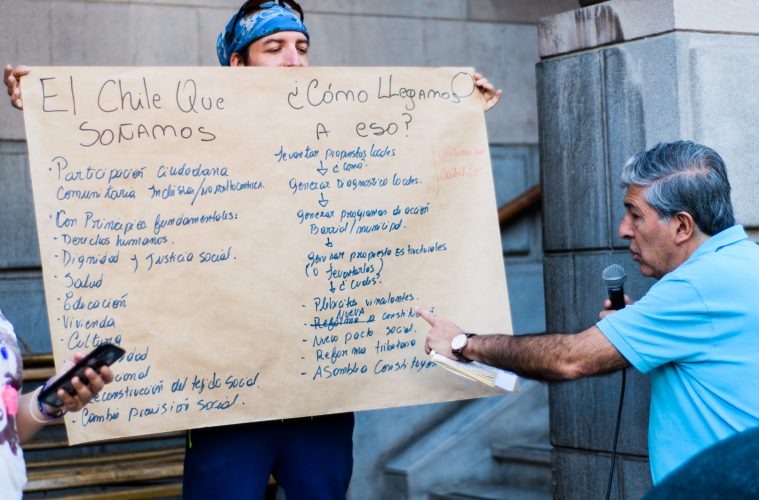 El Chile Que
Soñamos
· Participación Ciudadana
Comunitaria Inclusiva/
· Con Principios fundamentales:
- Derechos humanos.
- Dignidad y Justicia social.
- Salud
- Educación
- Vivienda
- Cultura
dad
cional
econstrucción del tejido social.
Cambio provisión social.
¿Cómo Llegamos
A eso?
levantar propuestas locales
↓ ¿cómo?
Generar Diagnostico locales.
↓
generar programas de acción
Barrial/municipal.
↓
generar propuesta Estructurales
(o levantarlas)
↓ ¿Cuales?
- Plebicitos vinculantes.
NUEVA
- Reforma a constitu
- Nuevo pacto social
- Reforma tributaria
- ASamblea Constituyen